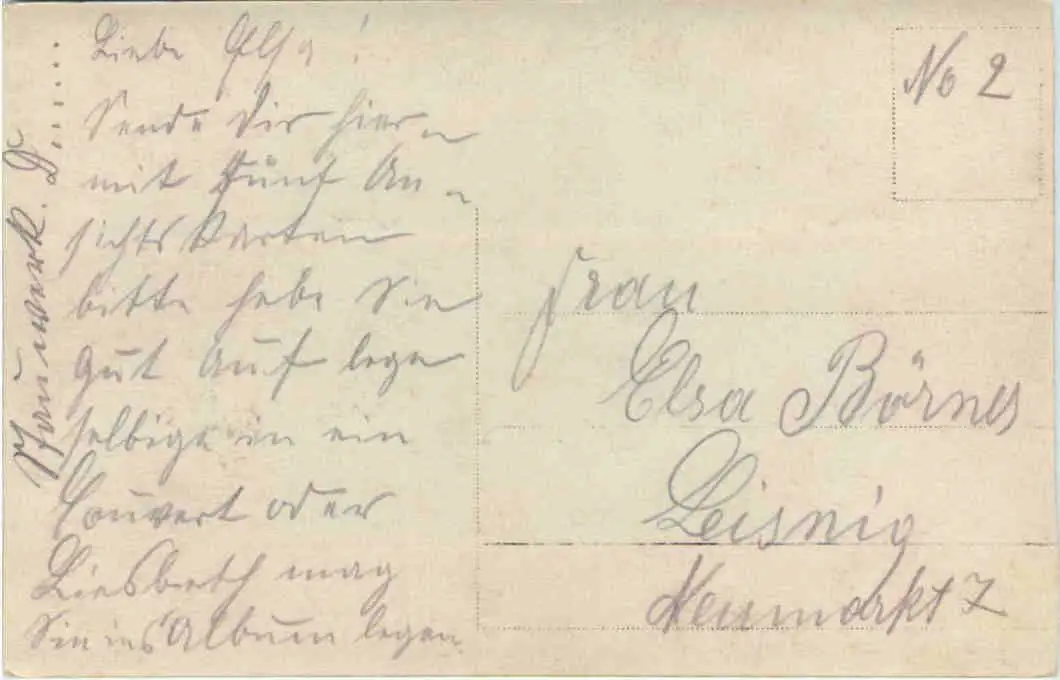 Liebe Elsa!
Sende Dir hier-
mit Fünf An-
sichtskarten
bitte hebe Sie
gut Auf lege
selbige in ein
Couvert oder
Liesbeth mag
Sie ins Album legen.
No 2
Frau
Elsa Börner
Leisnig
Neumarkt 7